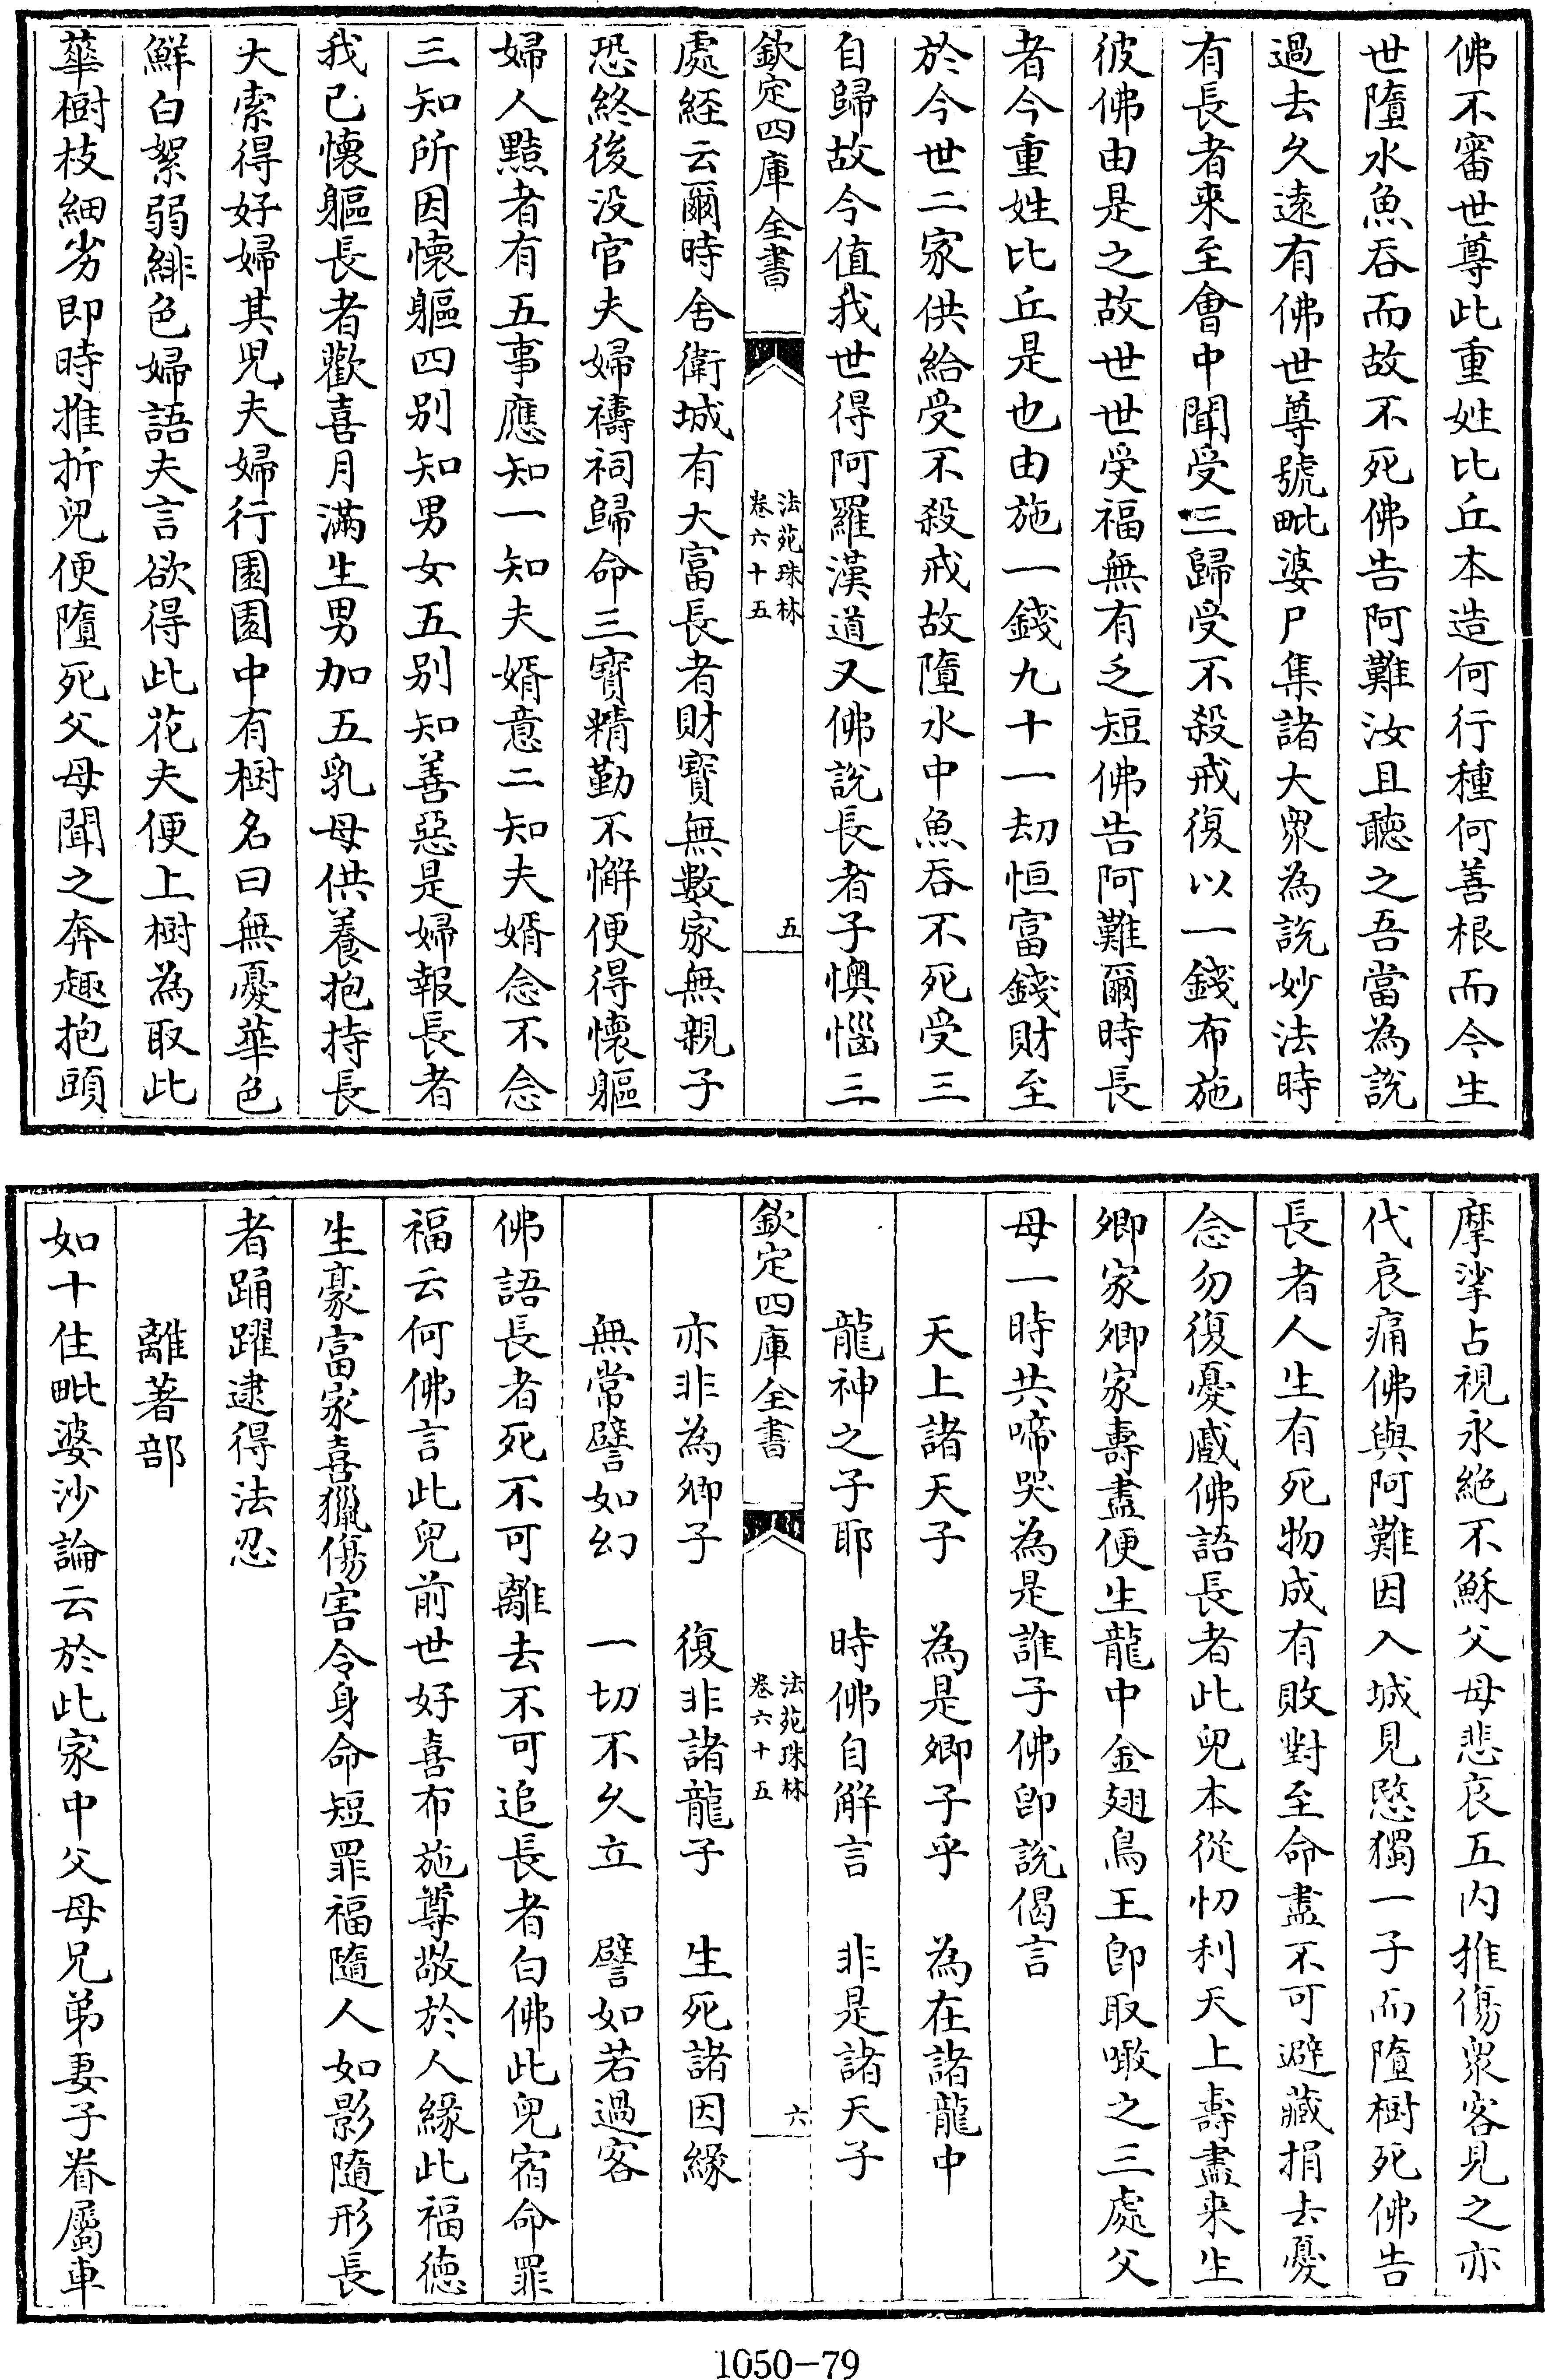 佛不審世尊此重姓比丘本造何行種何善根而今生
世墮水魚吞而故不死佛告阿難汝且聽之吾當為說
過去久遠有佛世尊號毗婆尸集諸大衆為說妙法時
有長者来至會中聞受三歸受不殺戒復以一錢布施
彼佛由是之故世世受福無有乏短佛告阿難爾時長
者今重姓比丘是也由施一錢九十一劫恒富錢財至
於今世二家供給受不殺戒故墮水中魚吞不死受三
自歸故今值我世得阿羅漢道又佛說長者子懊惱三
欽定四庫全書
法苑珠林
卷六十五
五
處經云爾時舍衛城有大富長者財寶無數家無親子
恐終後没官夫婦禱祠歸命三寶精勤不懈便得懷軀
婦人黠者有五事應知一知夫婿意二知夫婿念不念
三知所因懷軀四别知男女五别知善惡是婦報長者
我已懷軀長者歡喜月滿生男加五乳母供養抱持長
大索得好婦其兒夫婦行園園中有樹名曰無憂華色
鮮白絮弱緋色婦語夫言欲得此花夫便上樹為取此
華樹枝細劣即時摧折兒便墮死父母聞之奔趣抱頭
摩挲占視永絶不穌父母悲哀五内摧傷衆客見之亦
代哀痛佛與阿難因入城見愍獨一子而墮樹死佛告
長者人生有死物成有敗對至命盡不可避藏捐去憂
念勿復憂慼佛語長者此兒本從忉利天上壽盡来生
卿家卿家壽盡便生龍中金翅鳥王即取噉之三處父
母一時共啼哭為是誰子佛即說偈言
天上諸天子　為是卿子乎　為在諸龍中
龍神之子耶　時佛自解言　非是諸天子
欽定四庫全書
法苑珠林
卷六十五
六
亦非為卿子　復非諸龍子　生死諸因緣
無常譬如幻　一切不久立　譬如若過客
佛語長者死不可離去不可追長者白佛此兒宿命罪
福云何佛言此兒前世好喜布施尊敬於人緣此福徳
生豪富家喜獵傷害令身命短罪福隨人如影隨形長
者踊躍逮得法忍
離著部
如十住毗婆沙論云於此家中父母兄弟妻子眷屬車
1050-79